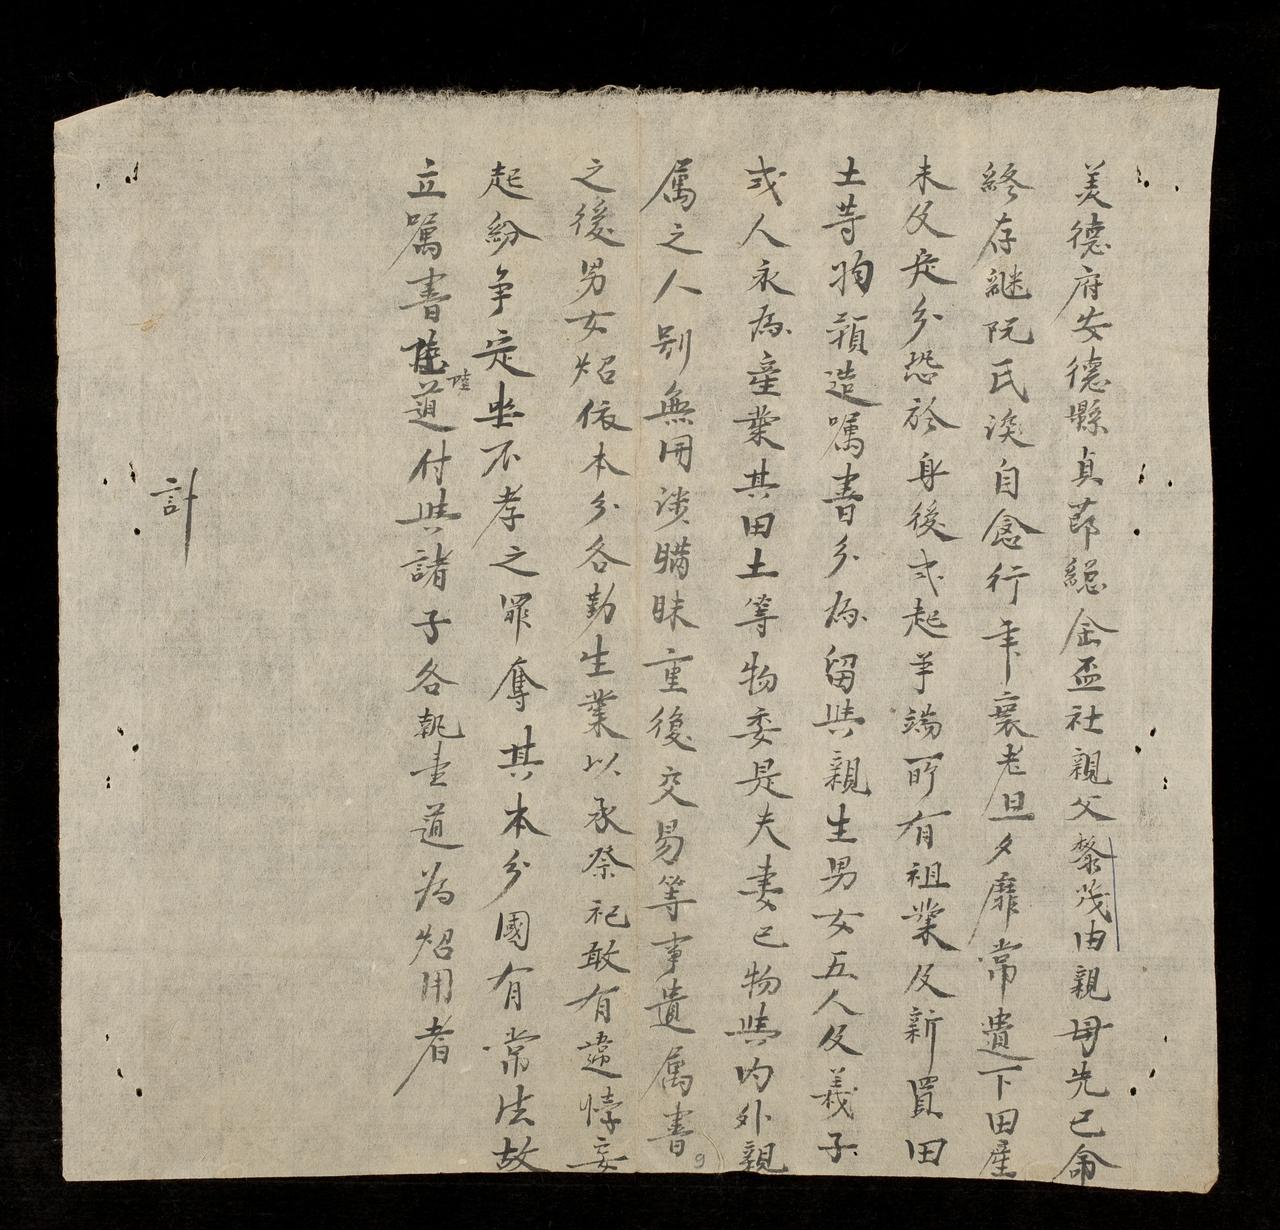 美德府安德縣貞莭緫金盃社親父黎茂由親母先已命
終存継阮氏淡自念行年衰老旦夕靡常遺下田産
未及定分恐於身後或起爭端所有祖業及新買田
土等物預造嘱書分為留與親生男女五人及義子
或人永為産業其田土等物委是夫妻己物與内外親
属之人別無用談瞞昧重復交易等事遺属書
之後男女炤依本分各勤生業以承祭祀敢有違悖妄
起紛爭定坐不孝之罪奪其本分國有常法故
立嘱書陸道付與諸子各執壹道為炤用者
陸
計
9